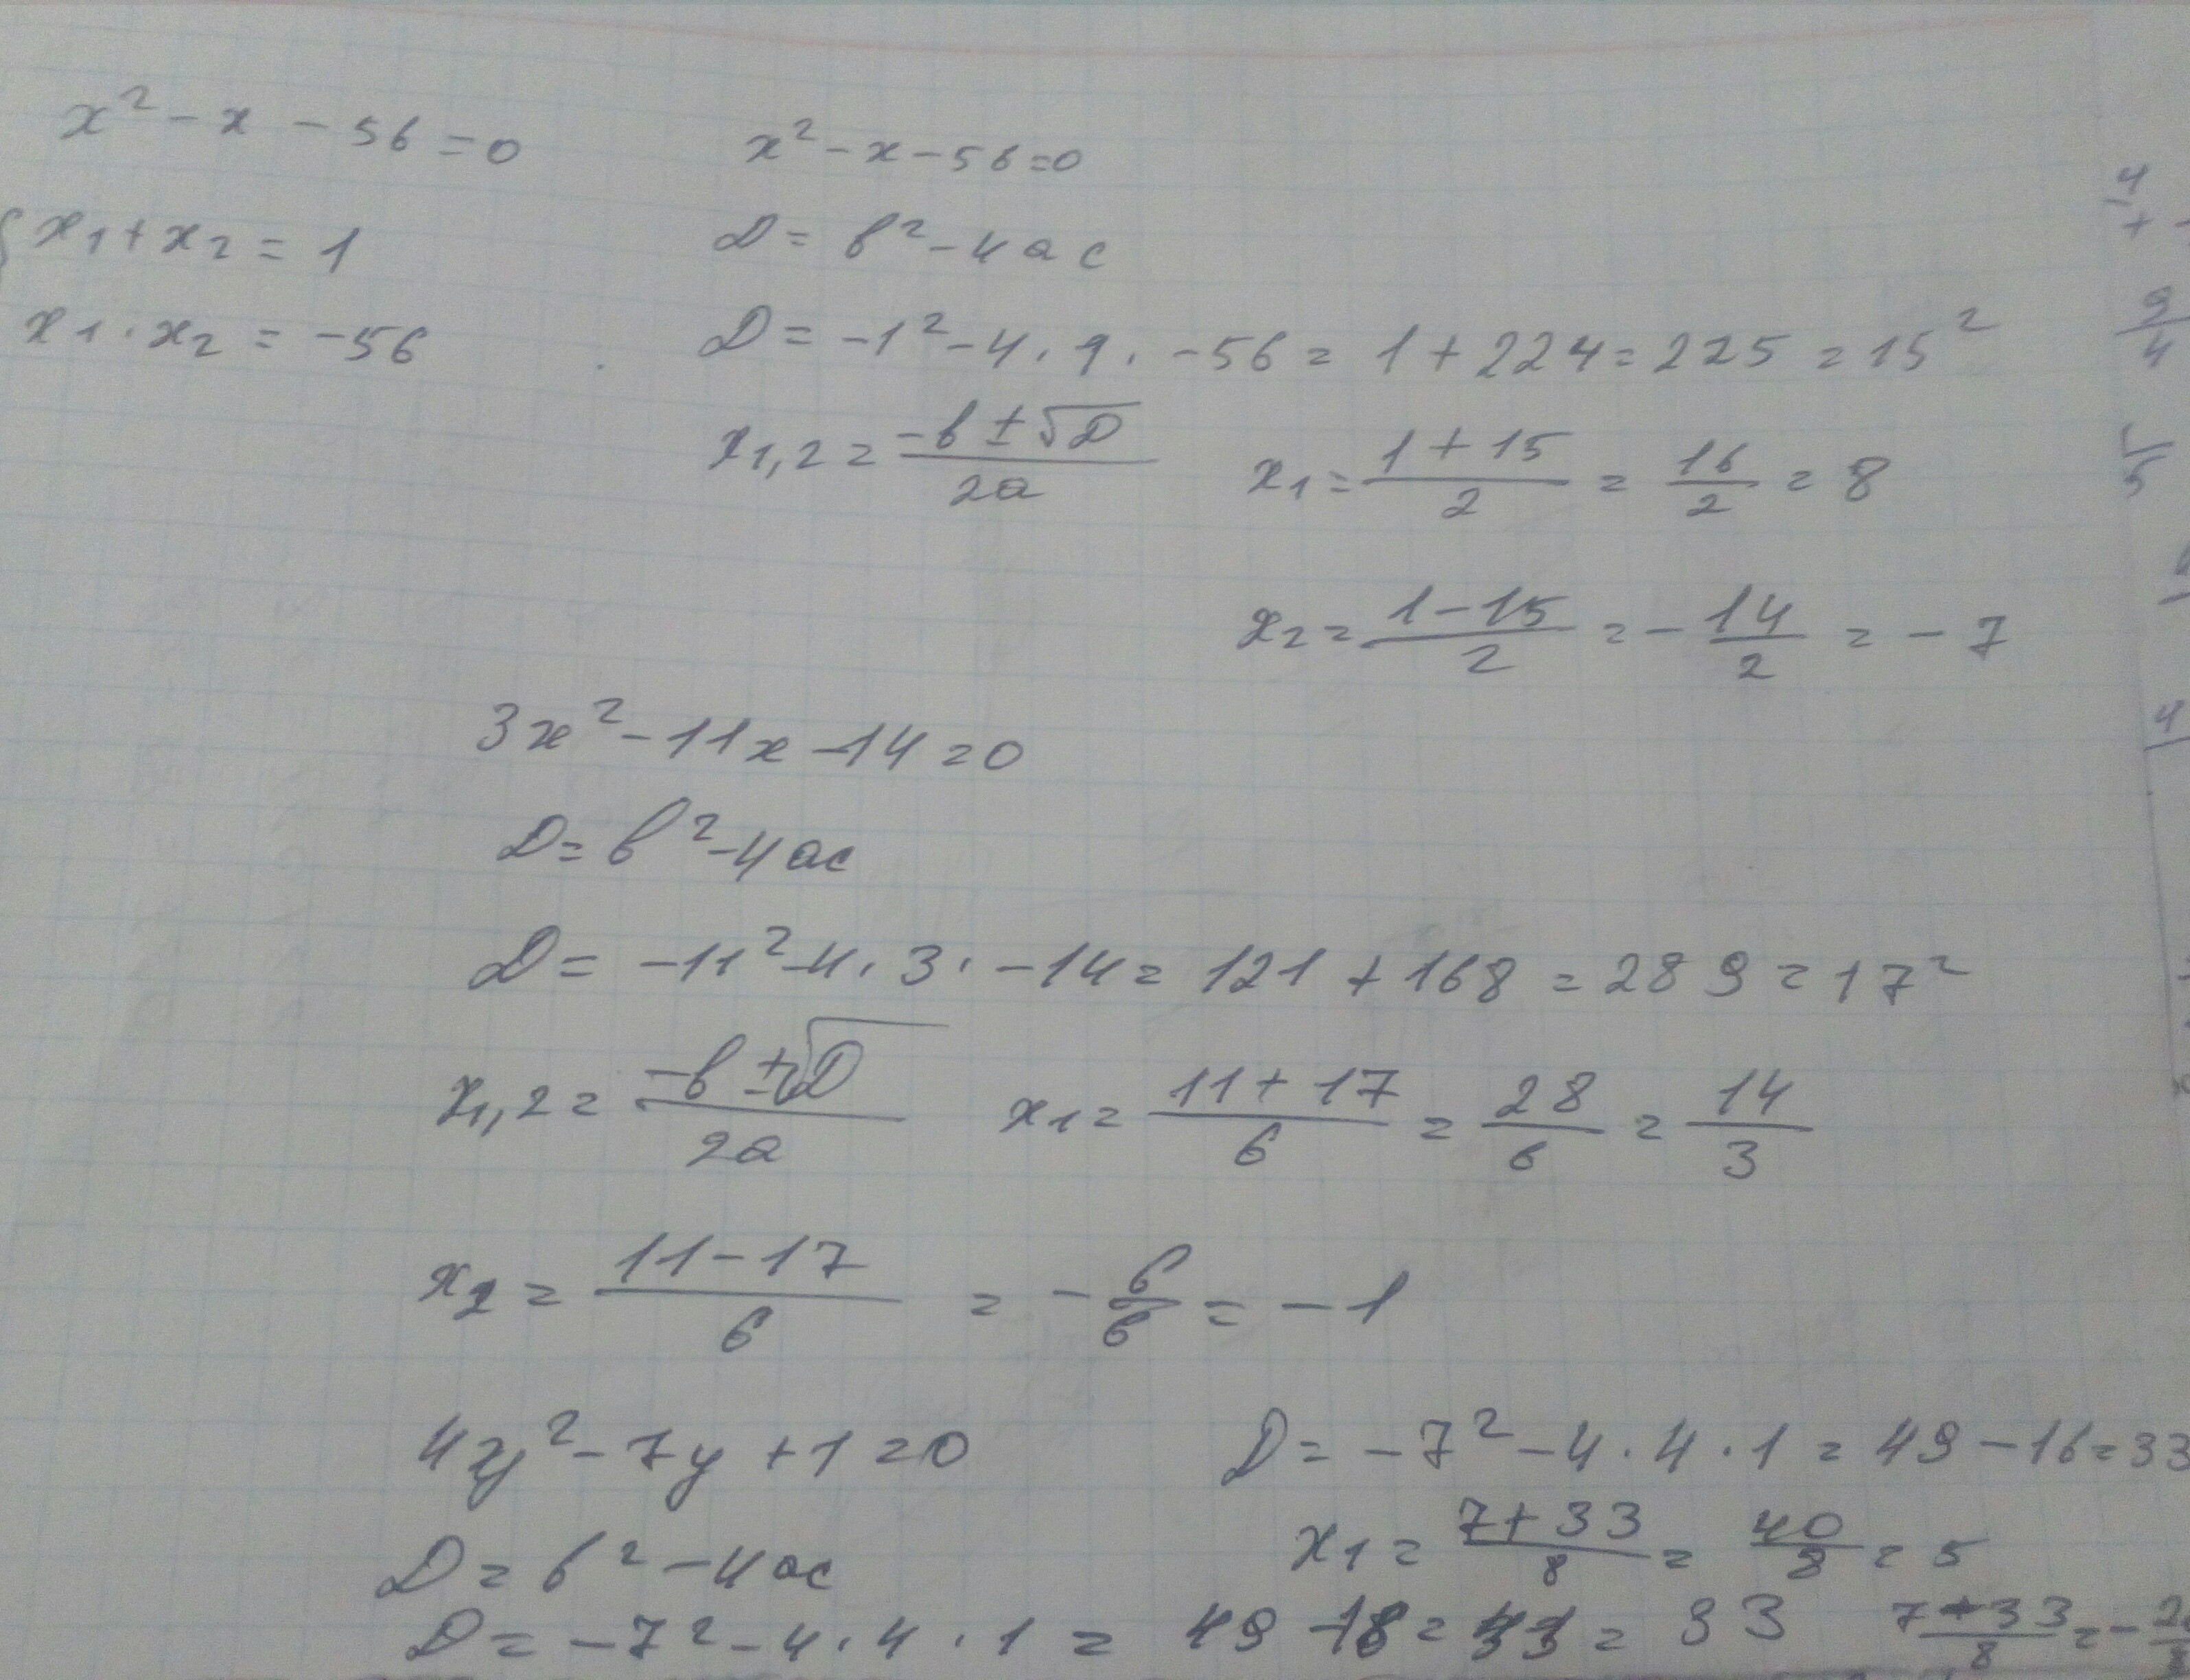 x² - x - 56 = 0
{ x₁ + x₂ = 1
x₁ · x₂ = -56
x² - x - 56 = 0
D = b² - 4ac
D = -1² - 4 · 1 · -56 = 1 + 224 = 225 = 15²
x₁,₂ = (-b ± √D) / 2a   x₁ = (1 + 15) / 2 = 16/2 = 8
x₂ = (1 - 15) / 2 = -14/2 = -7
3x² - 11x - 14 = 0
D = b² - 4ac
D = -11² - 4 · 3 · -14 = 121 + 168 = 289 = 17²
x₁,₂ = (-b ± √D) / 2a   x₁ = (11 + 17) / 6 = 28/6 = 14/3
x₂ = (11 - 17) / 6 = -6/6 = -1
4y² - 7y + 1 = 0
D = b² - 4ac
D = -7² - 4 · 4 · 1 = 49 - 16 = 33
D = -7² - 4 · 4 · 1 = 49 - 16 = 33
x₁ = (7 + 33) / 8 = 40/8 = 5